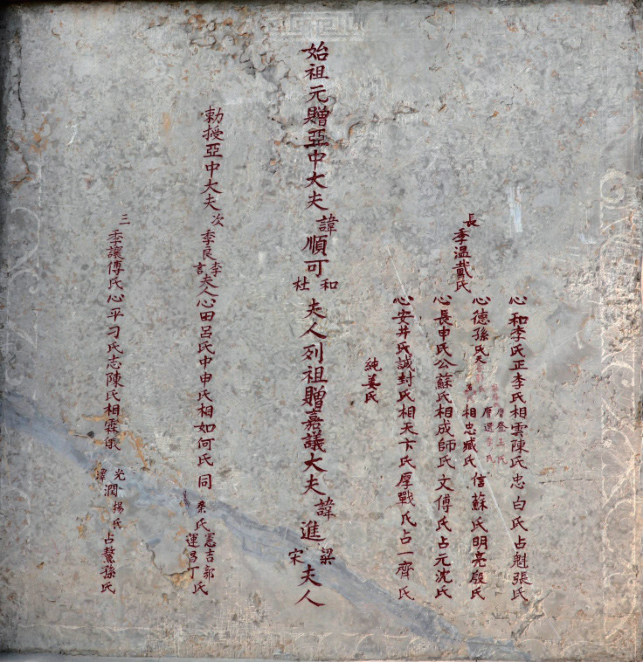 長 季溫戴氏
心和李氏正李氏相雲陳氏忠白氏占魁張氏
心德孫氏 相忠臧氏 信蘇氏明亮殷氏
心長申氏公蘇氏相成師氏文傅氏占元沈氏
心安井氏誠封氏相天卞氏厚戰氏占一齊氏
純姜氏
始祖元贈亞中大夫諱順可和杜夫人列祖贈嘉議大夫諱進梁宋夫人
勅授亞中大夫次季良李言夫人心田呂氏中申氏相如何氏同秦氏憲吉郭氏運昌丁氏
三季讓傅氏心平刁氏志陳氏相霖 光 潤楊氏占鰲孫氏